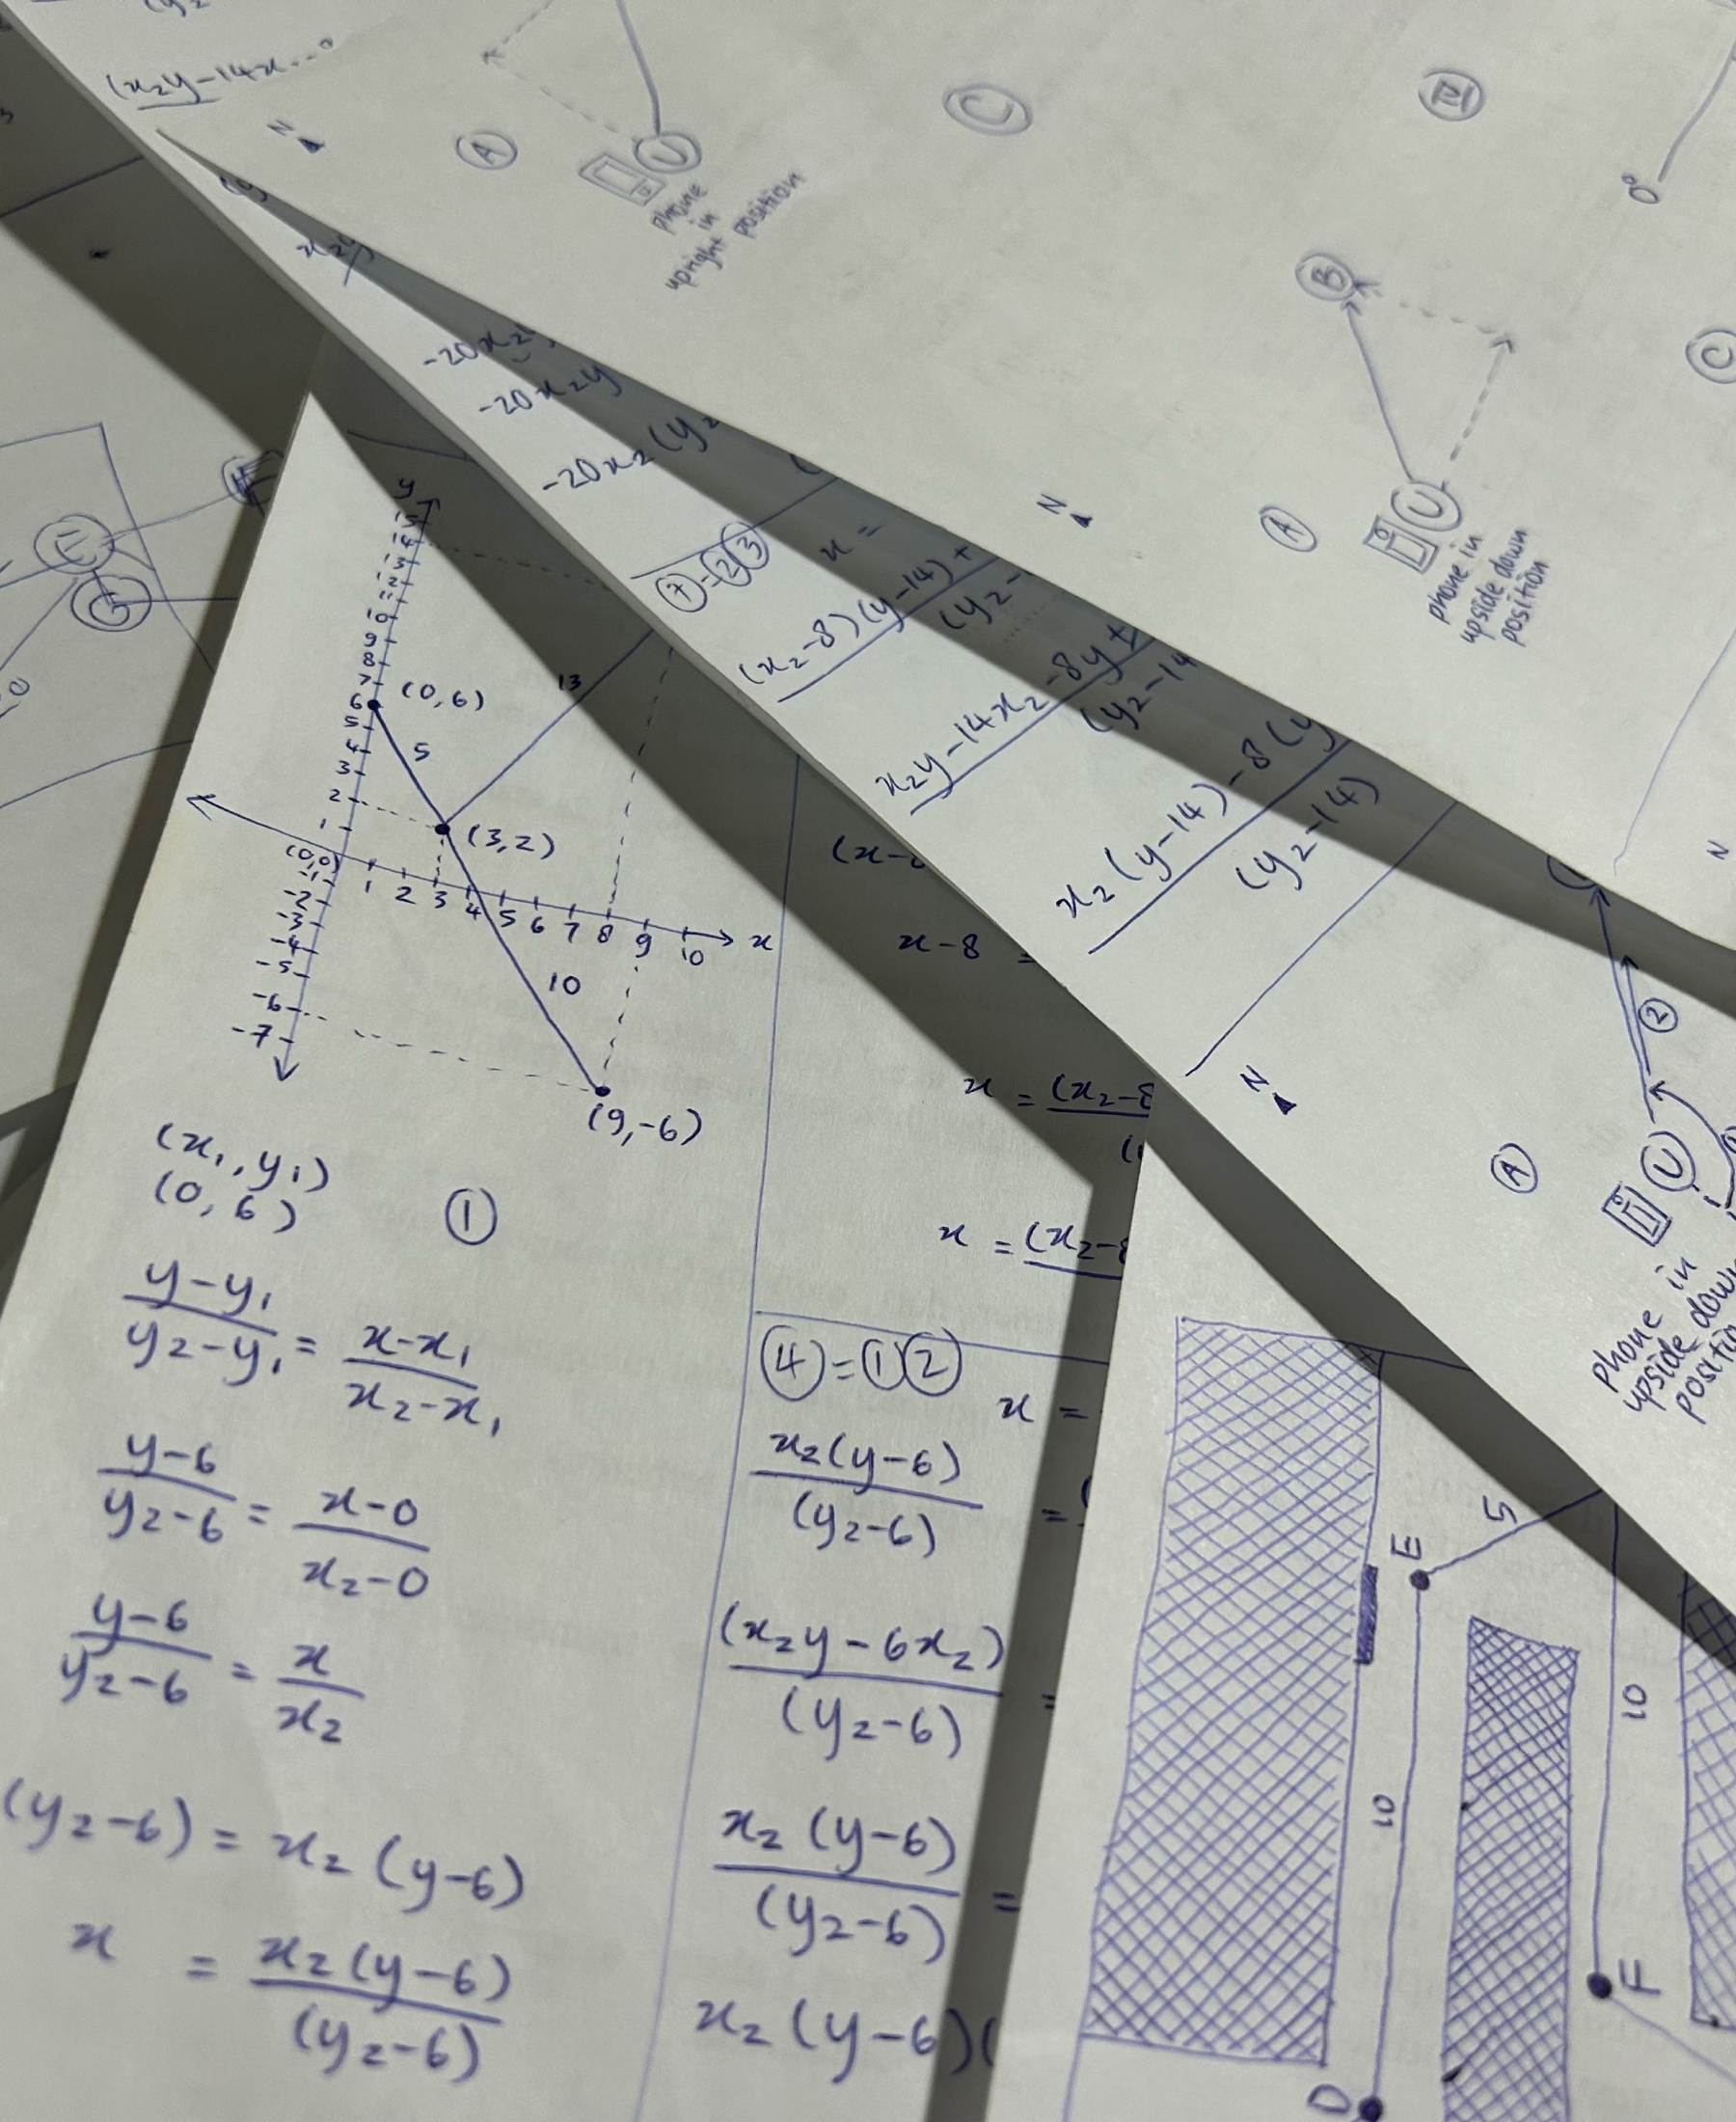 (x₂y-14x
N
A
U
phone
in
upright position
C
IV
B
C
N
A
U
phone in
upside down
position
-20x₂
-20x₂y
-20x₂(y₂
7=23
x =
(x₂-8)(y-14)+
(y₂-
x₂y-14x₂-8y+
(y₂-14
x₂(y-14)-8(y
(y₂-14)
N
A
U
2
phone in
upside down
position
N
E
G
y
9
8
7
6
5
4
3
2
1
(0,6)
5
13
(3,2)
(0,0)
-1
-2
-3
-4
-5
-6
-7
1 2 3 4 5 6 7 8 9 10 x
10
(9,-6)
(x₁,y₁)
(0,6)
1
y-y₁
y₂-y₁ = x-x₁
x₂-x₁
y-6
y₂-6 = x-0
x₂-0
y-6
y₂-6 = x
x₂
(y₂-6) = x₂(y-6)
x = x₂(y-6)
(y₂-6)
x-8 =
x = (x₂-8
x = (x₂-8
4=12
x =
x₂(y-6)
(y₂-6) =
(x₂y-6x₂)
(y₂-6) =
x₂(y-6)
(y₂-6) =
x₂(y-6)(
E
5
10
10
D
F